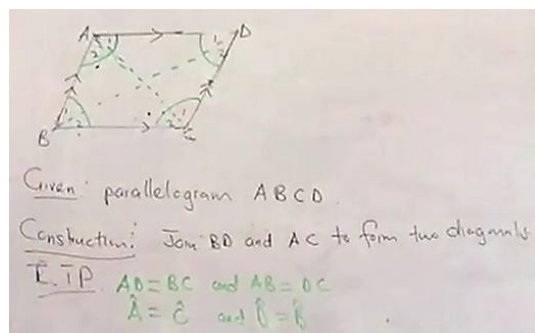 A 1 2 1 2 D
B 1 2 1 2 C
Given: parallelogram ABCD.
Construction: Join BD and AC to form two diagonals
R.T.P. AD = BC and AB = DC
Â = Ĉ and D̂ = B̂